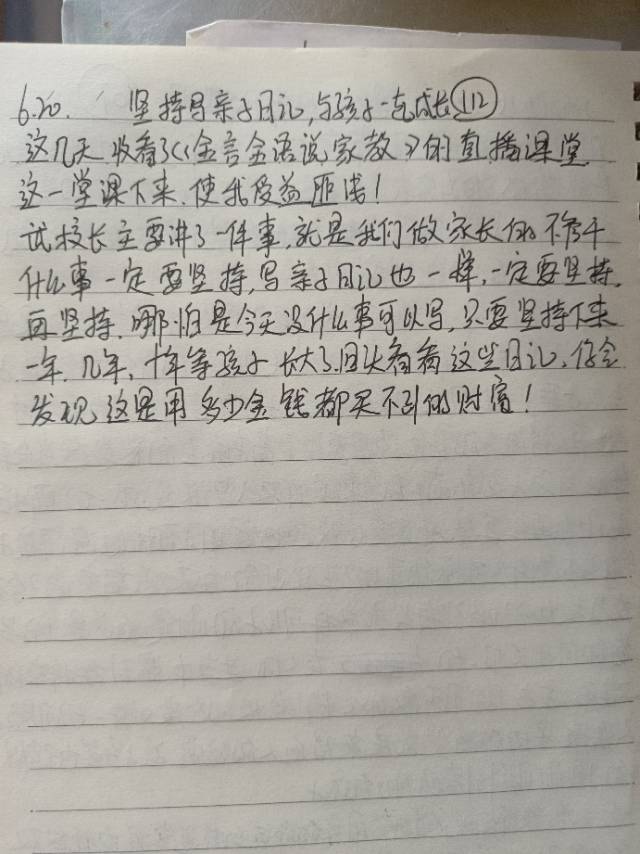 6.20. 坚持写亲子日记,与孩子一起成长 112
这几天收看了《金言金语说家教》的直播课堂
这一堂课下来,使我受益匪浅!
试校长主要讲了一件事,就是我们做家长的不管干
什么事一定要坚持,写亲子日记也一样,一定要坚持,
再坚持,哪怕是今天没什么事可以写,只要坚持下来
一年、几年、十年等孩子长大了,回头看看这些日记,你会
发现这是用多少金钱都买不到的财富!